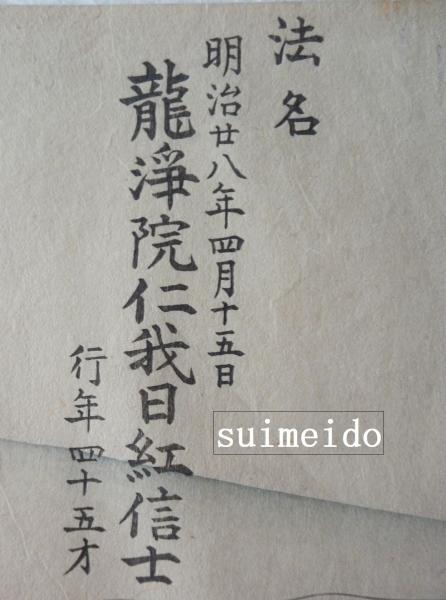 法名
明治廿八年四月十五日
龍淨院仁我日紅信士
行年四十五才
suimeido